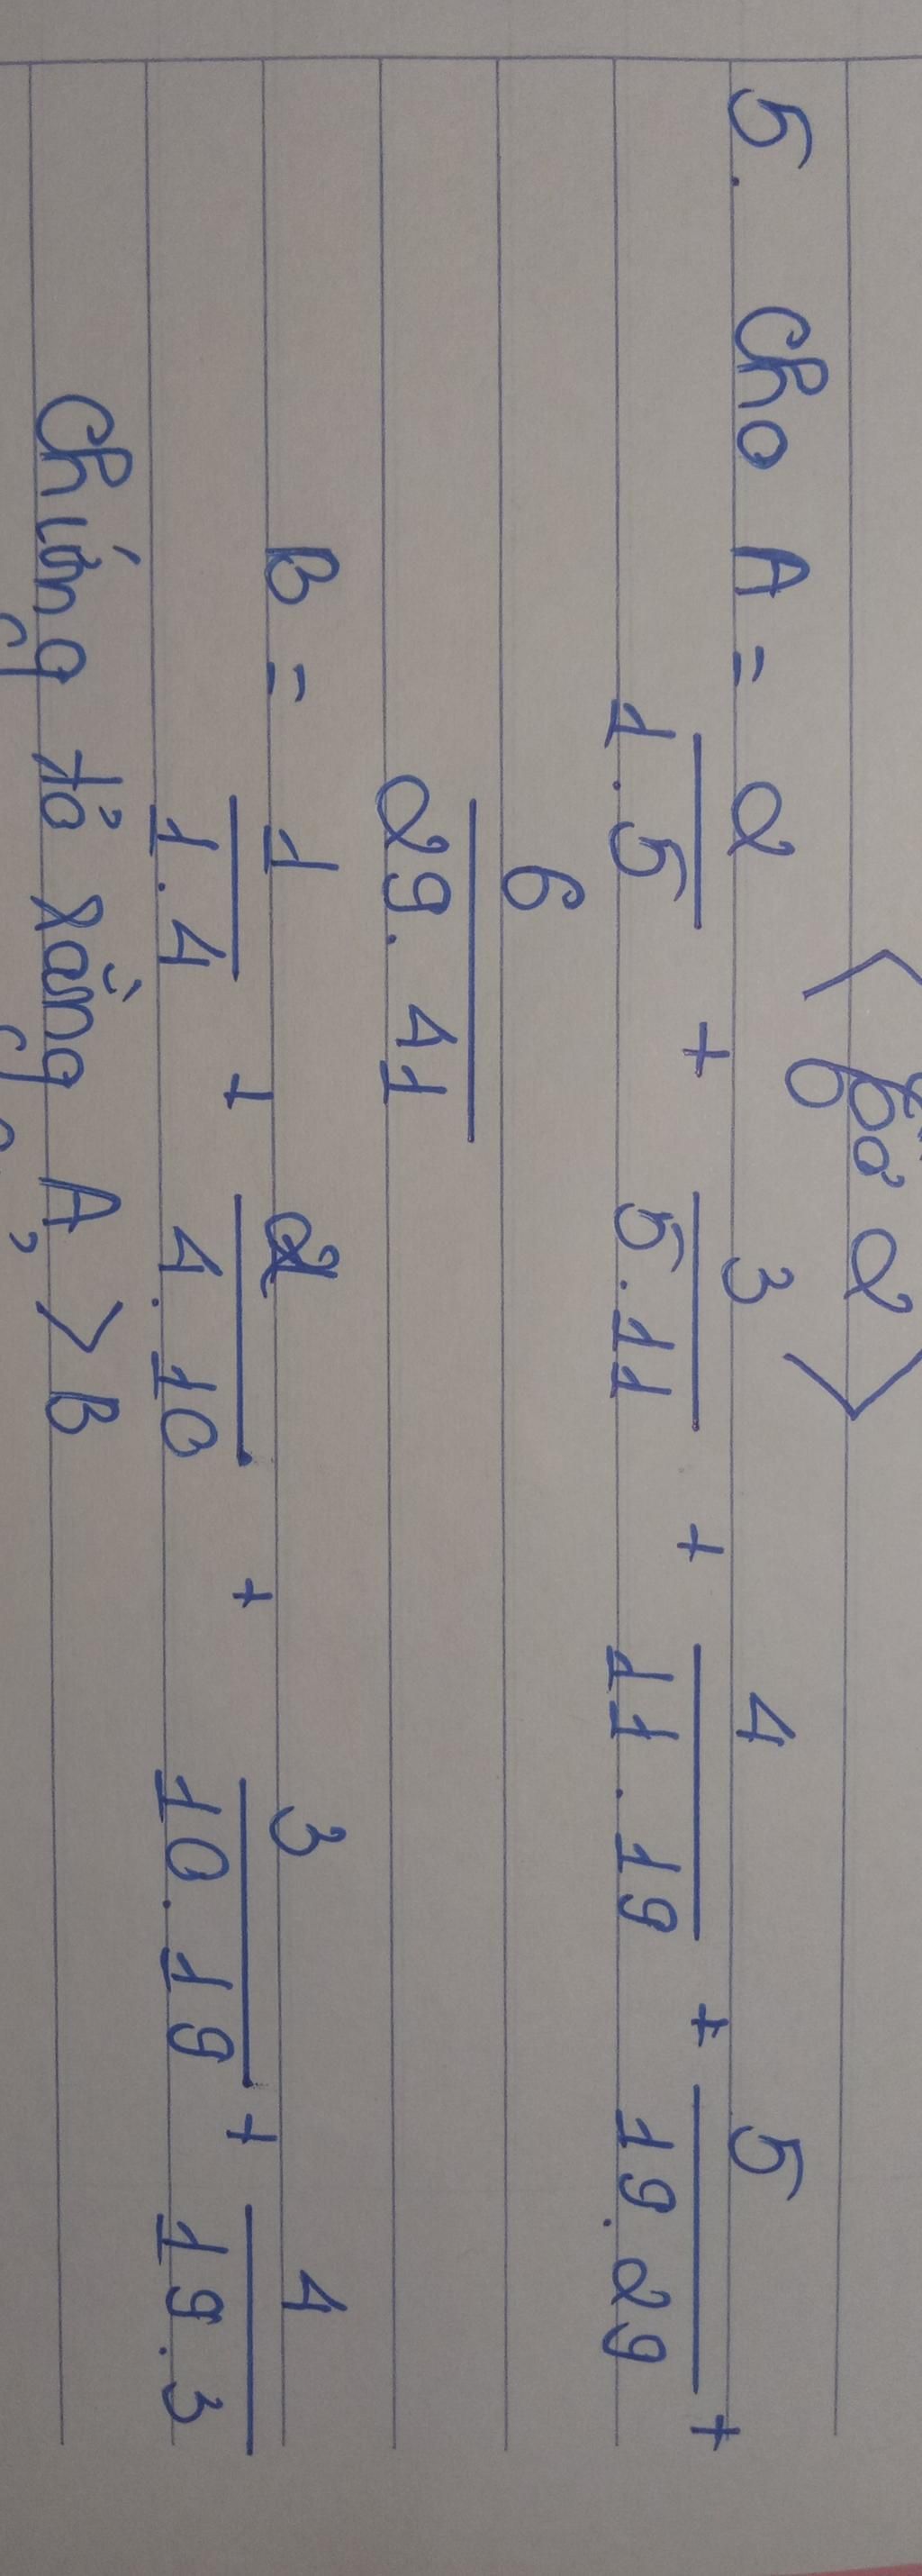 < Đề 2 >
5. Cho A = 2/1.5 + 3/5.11 + 4/11.19 + 5/19.29 +
6/29.41
B = 1/1.4 + 2/4.10 + 3/10.19 + 4/19.3
Chứng tỏ rằng A > B